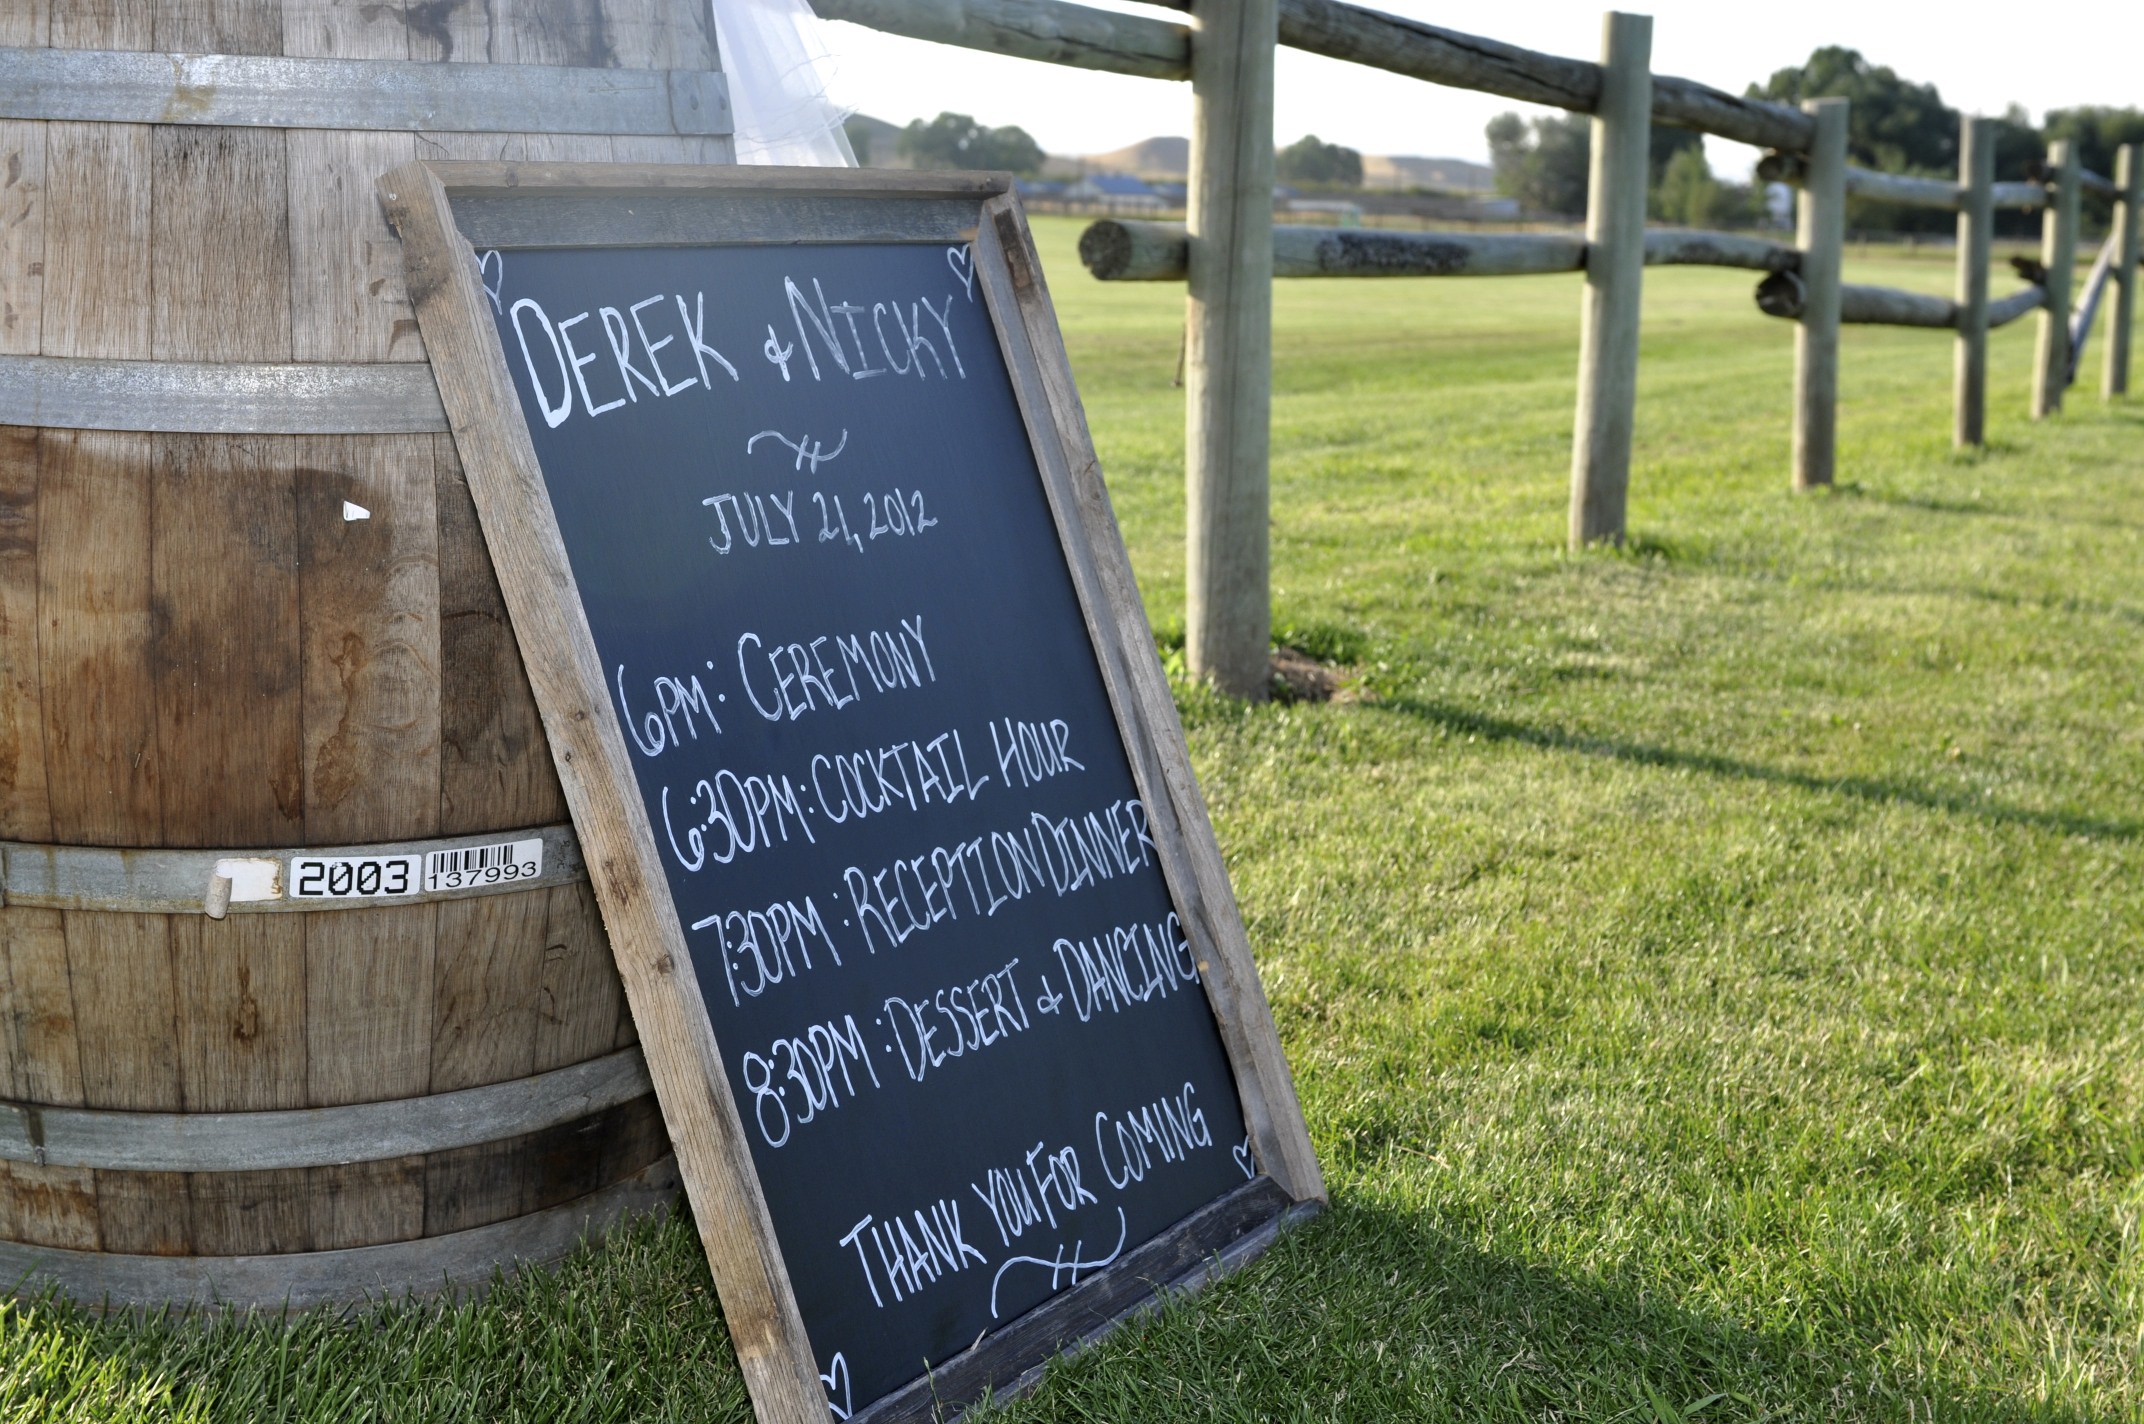 DEREK & NICKY
JULY 21, 2012
6PM: CEREMONY
6:30PM: COCKTAIL HOUR
7:30PM: RECEPTION DINNER
8:30PM: DESSERT & DANCING
THANK YOU FOR COMING
2003
137993